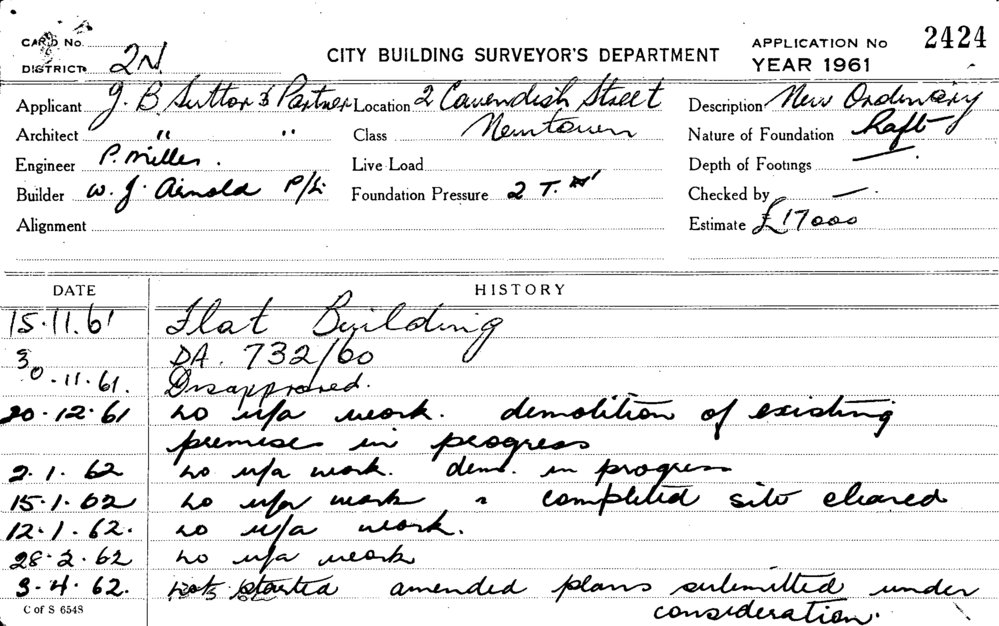 CARD No.
DISTRICT 2N
CITY BUILDING SURVEYOR'S DEPARTMENT
APPLICATION No 2424
YEAR 1961
Applicant J. B Sutton & Partner Location 2 Cavendish Street Description New Ordinary
Architect " " Class Newtown Nature of Foundation Raft
Engineer P. Miller. Live Load Depth of Footings —
Builder W. J. Arnold P/L. Foundation Pressure 2 T. Checked by —
Alignment Estimate £17000
DATE HISTORY
15.11.61 Flat Building
DA. 732/60
30.11.61. Disapproved.
20.12.61 no u/a work. demolition of existing
premises in progress
2.1.62 no u/a work. demo. in progress
15.1.62 no u/a work " completed site cleared
12.1.62. no u/a work.
28.2.62 no u/a work
3.4.62. not started amended plans submitted under
consideration.
C of S 6548